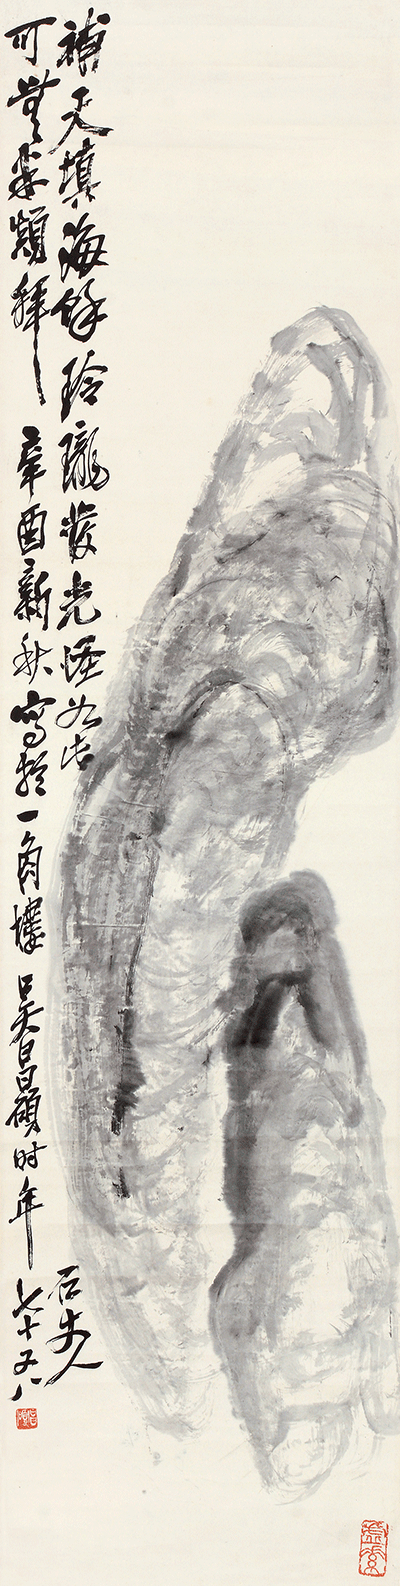 補天填海餘玲瓏發光怪如此石丈人
可無米顛拜辛酉新秋寫於一角樓吳昌碩時年七十又八